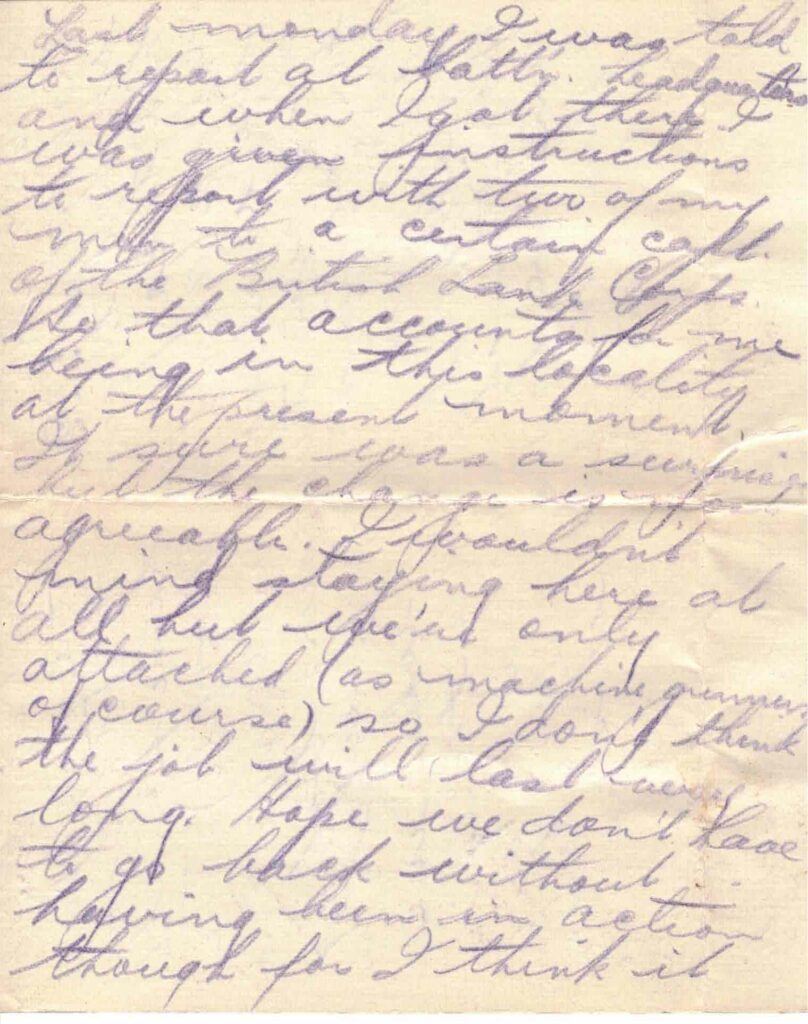 Last monday I was told
to report at Batt'n. headquarters
and when I got there I
was given instructions
to report with two of my
men to a certain capt.
of the British Tank Corps.
So that accounts for me
being in this locality
at the present moment.
It sure was a surprise
but the change is
agreeable. I wouldn't
mind staying here at
all but we're only
attached (as machine gunners
of course) so I don't think
the job will last very
long. Hope we don't have
to go back without
having been in action
though for I think it